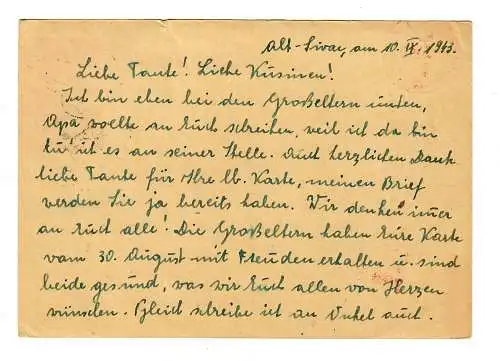 Alt-Siwac, am 10. IX. 1943.
Liebe Tante! Liebe Kusinen!
Ich bin eben bei den Großeltern unten,
Opa wollte an Euch schreiben, weil ich da bin
tu' ich es an seiner Stelle. Auch herzlichen Dank
liebe Tante für Ihre lb. Karte, meinen Brief
werden Sie ja bereits haben. Wir denken imer
an Euch alle! Die Großeltern haben Eure Karte
vom 30. August mit Freuden erhalten u. sind
beide gesund, was wir Euch allen von Herzen
wünschen. Gleich schreibe ich an Onkel auch.